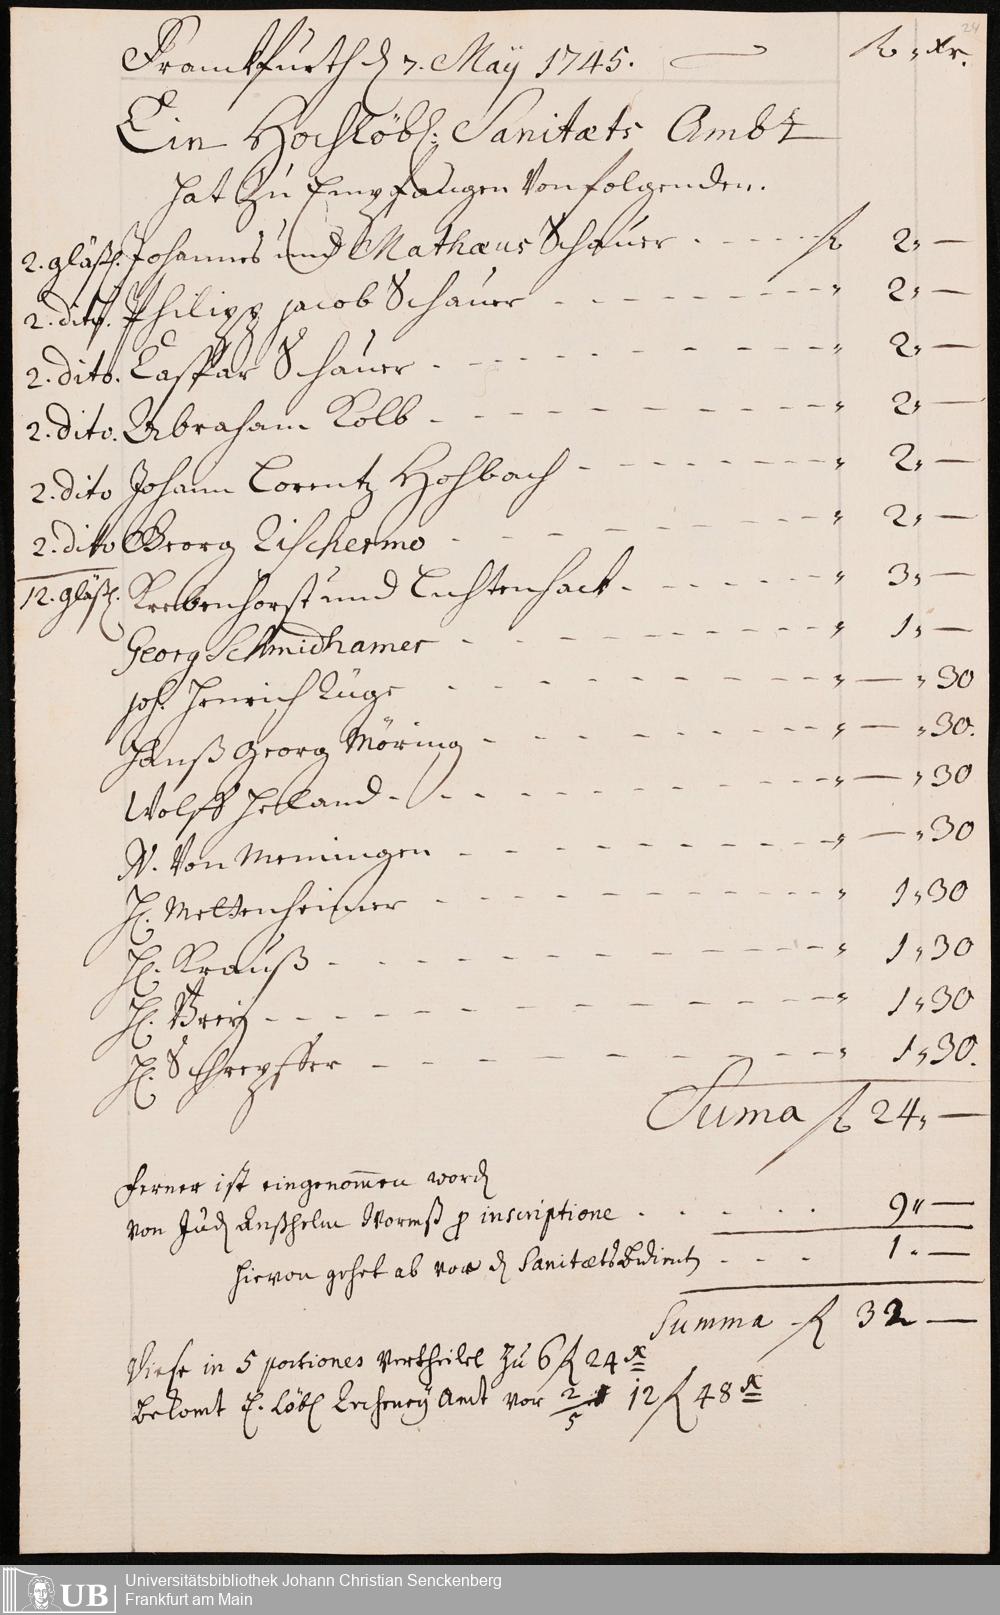 24
Franckfurth d 7. Maÿ 1745. fl „ xr.
Ein Hochlöbl: Sanitæts Ambt
hat Zu Empfangen Von folgenden.
2. gläßl. Johannes und Mathæus Schauer fl 2„ —
2. dito. Philipp Jacob Schauer „ 2„ —
2. dito. Caspar Schauer „ 2„ —
2. dito. Abraham Kolb „ 2„ —
2. dito Johann Lorentz Hohbach „ 2„ —
2. dito Georg Zischermo „ 2„ —
12. gläßl. Krebenhorst und Lichtenhack „ 3„ —
Georg Schmidhamer „ 1„ —
Joh. Henrich Lüge „ — „ 30
Hanß Georg Möring „ — „ 30.
Wolff Heiland „ — „ 30
N. Von Memingen „ — „ 30
H. Meltenheimer „ 1„ 30
H. Krauß „ 1„ 30
H. Breÿ „ 1„ 30
H. Schrepffer „ 1„ 30.
Suma fl 24„ —
Ferner ist eingenommen word
von Jud Anßhelm Wormß p inscriptione 9„ —
hievon gehet ab vor d Sanitæts Bedient 1„ —
Summa fl 32 —
Diese in 5 portiones vertheilet zu 6 fl 24 x
bekomt E. Löbl Recheneÿ Amt vor 2/5 12 fl 48 x
UB Universitätsbibliothek Johann Christian Senckenberg
Frankfurt am Main